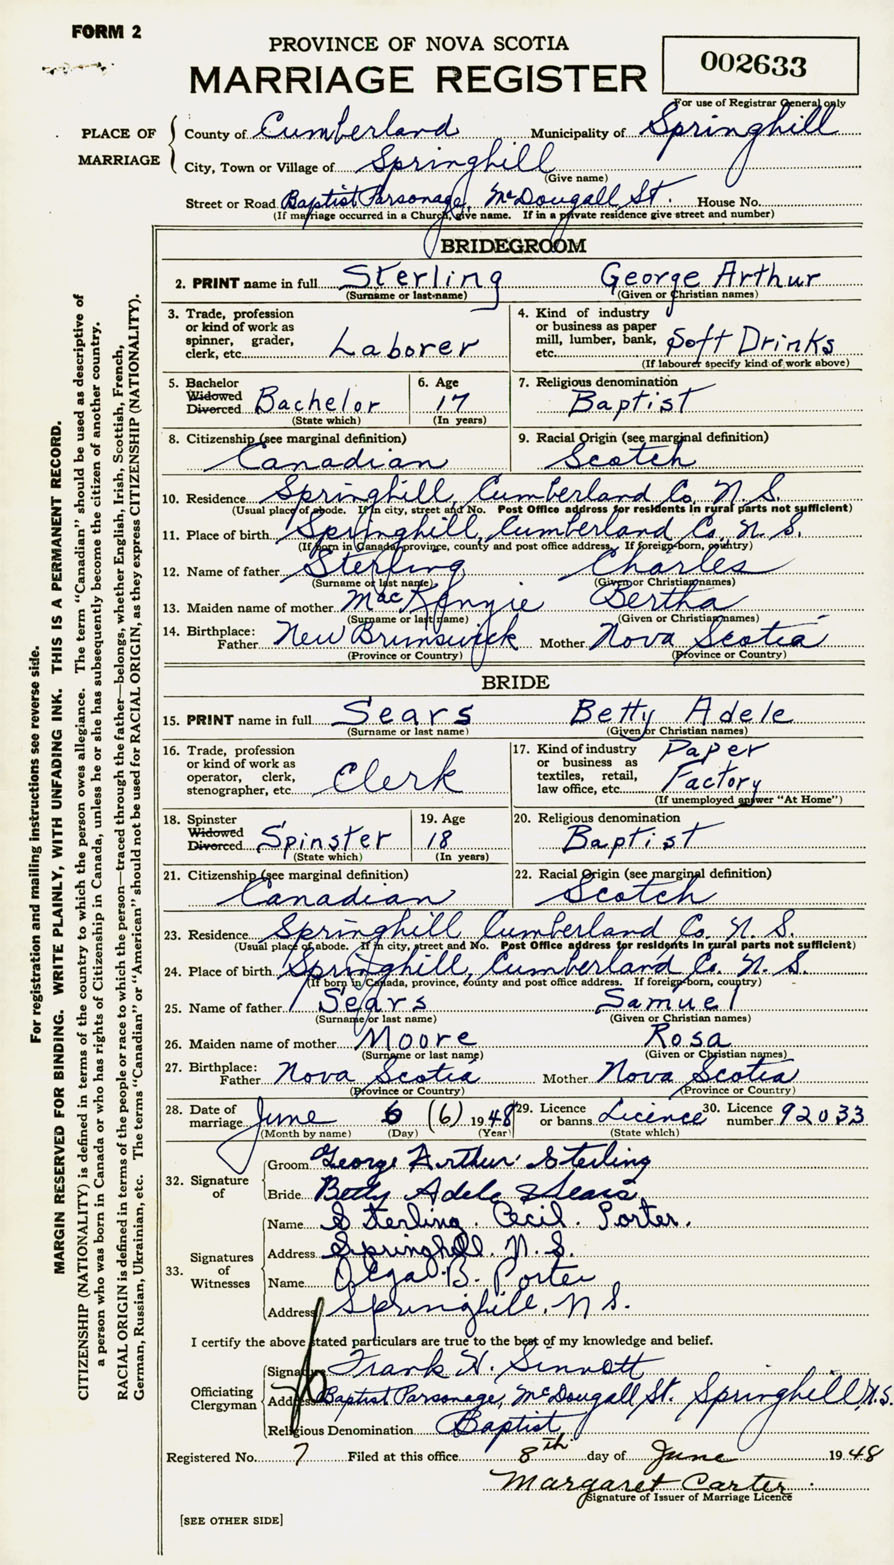 FORM 2
PROVINCE OF NOVA SCOTIA
MARRIAGE REGISTER
002633
For use of Registrar General only
PLACE OF MARRIAGE
County of Cumberland Municipality of Springhill
City, Town or Village of Springhill
(Give name)
Street or Road Baptist Parsonage, McDougall St. House No.
(If marriage occurred in a Church, give name. If in a private residence give street and number)
BRIDEGROOM
2. PRINT name in full Sterling George Arthur
(Surname or last name) (Given or Christian names)
3. Trade, profession or kind of work as spinner, grader, clerk, etc. Laborer
4. Kind of industry or business as paper mill, lumber, bank, etc. Soft Drinks
(If labourer specify kind of work above)
5. Bachelor Widowed Divorced Bachelor
(State which)
6. Age 17
(In years)
7. Religious denomination
Baptist
8. Citizenship (see marginal definition)
Canadian
9. Racial Origin (see marginal definition)
Scotch
10. Residence Springhill, Cumberland Co. N. S.
(Usual place of abode. If in city, street and No. Post Office address for residents in rural parts not sufficient)
11. Place of birth Springhill, Cumberland Co. N. S.
(If born in Canada, province, county and post office address. If foreign-born, country)
12. Name of father Sterling Charles
(Surname or last name) (Given or Christian names)
13. Maiden name of mother MacKenzie Bertha
(Surname or last name) (Given or Christian names)
14. Birthplace:
Father New Brunswick Mother Nova Scotia
(Province or Country) (Province or Country)
BRIDE
15. PRINT name in full Sears Betty Adele
(Surname or last name) (Given or Christian names)
16. Trade, profession or kind of work as operator, clerk, stenographer, etc. Clerk
17. Kind of industry or business as textiles, retail, law office, etc. Paper Factory
(If unemployed answer "At Home")
18. Spinster Widowed Divorced Spinster
(State which)
19. Age 18
(In years)
20. Religious denomination
Baptist
21. Citizenship (see marginal definition)
Canadian
22. Racial Origin (see marginal definition)
Scotch
23. Residence Springhill Cumberland Co. N. S.
(Usual place of abode. If in city, street and No. Post Office address for residents in rural parts not sufficient)
24. Place of birth Springhill, Cumberland Co. N. S.
(If born in Canada, province, county and post office address. If foreign-born, country)
25. Name of father Sears Samuel
(Surname or last name) (Given or Christian names)
26. Maiden name of mother Moore Rosa
(Surname or last name) (Given or Christian names)
27. Birthplace:
Father Nova Scotia Mother Nova Scotia
(Province or Country) (Province or Country)
28. Date of marriage June 6 (6) 1948
(Month by name) (Day) (Year)
29. Licence or banns Licence
(State which)
30. Licence number 92033
32. Signature of
Groom George Arthur Sterling
Bride Betty Adele Sears
33. Signatures of Witnesses
Name Sterling Cecil Porter.
Address Springhill. N. S.
Name Olga B. Porter
Address Springhill, N S.
I certify the above stated particulars are true to the best of my knowledge and belief.
Officiating Clergyman
Signature Frank H. Sinnott
Address Baptist Parsonage, McDougall St. Springhill, N.S.
Religious Denomination Baptist
Registered No. 7 Filed at this office 8th day of June 1948
Margaret Carter
Signature of Issuer of Marriage Licence
[SEE OTHER SIDE]
For registration and mailing instructions see reverse side.
MARGIN RESERVED FOR BINDING. WRITE PLAINLY, WITH UNFADING INK. THIS IS A PERMANENT RECORD.
CITIZENSHIP (NATIONALITY) is defined in terms of the country to which the person owes allegiance. The term "Canadian" should be used as descriptive of
a person who was born in Canada or who has rights of Citizenship in Canada, unless he or she has subsequently become the citizen of another country.
RACIAL ORIGIN is defined in terms of the people or race to which the person—traced through the father—belongs, whether English, Irish, Scottish, French,
German, Russian, Ukrainian, etc. The terms "Canadian" or "American" should not be used for RACIAL ORIGIN, as they express CITIZENSHIP (NATIONALITY).